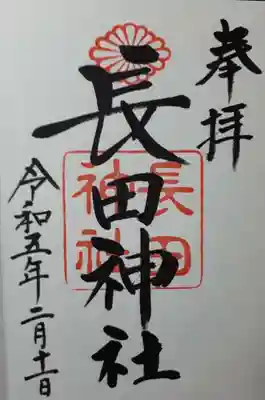 奉拝
長田神社
長田
神社
令和五年二月十二日